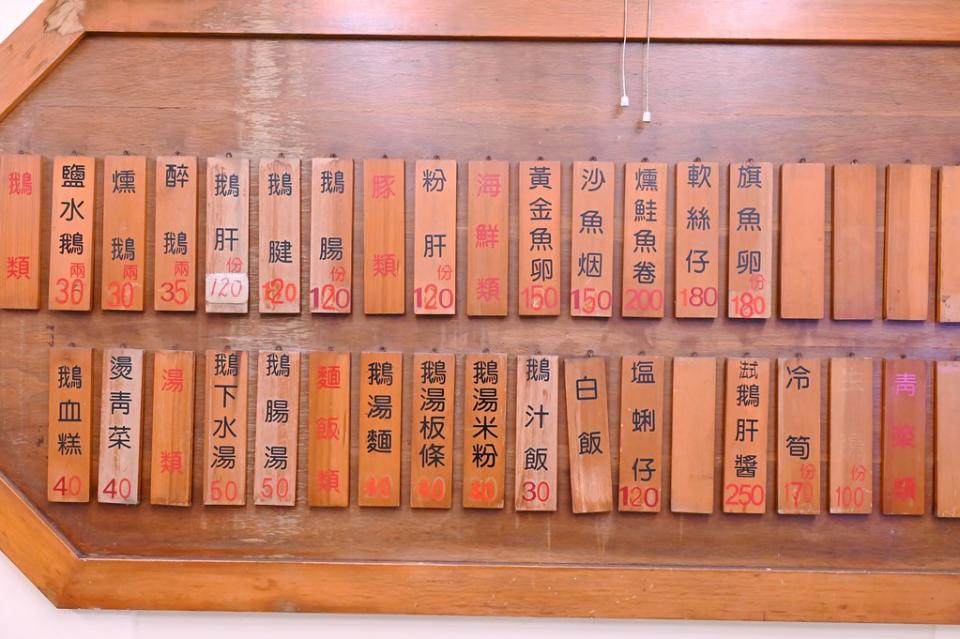 鵝類
鹽水鵝兩30
燻鵝兩30
醉鵝兩35
鵝肝份120
鵝腱120
鵝腸份120
豚類
粉肝份120
海鮮類
黃金魚卵150
沙魚烟150
燻鮭魚卷200
軟絲仔180
旗魚卵份180
鵝血糕40
燙青菜40
湯類
鵝下水湯50
鵝腸湯50
麵飯類
鵝湯麵40
鵝湯板條40
鵝湯米粉40
鵝汁飯30
白飯
塩蜊仔120
法式鵝肝醬250
冷筍份170
份100
青菜類